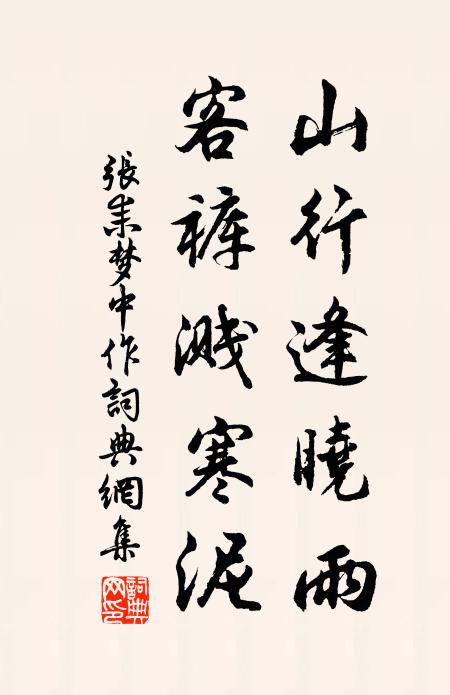 山行逢曉雨
客裤濺寒泥
張耒梦中作詞典網集
詞典網印